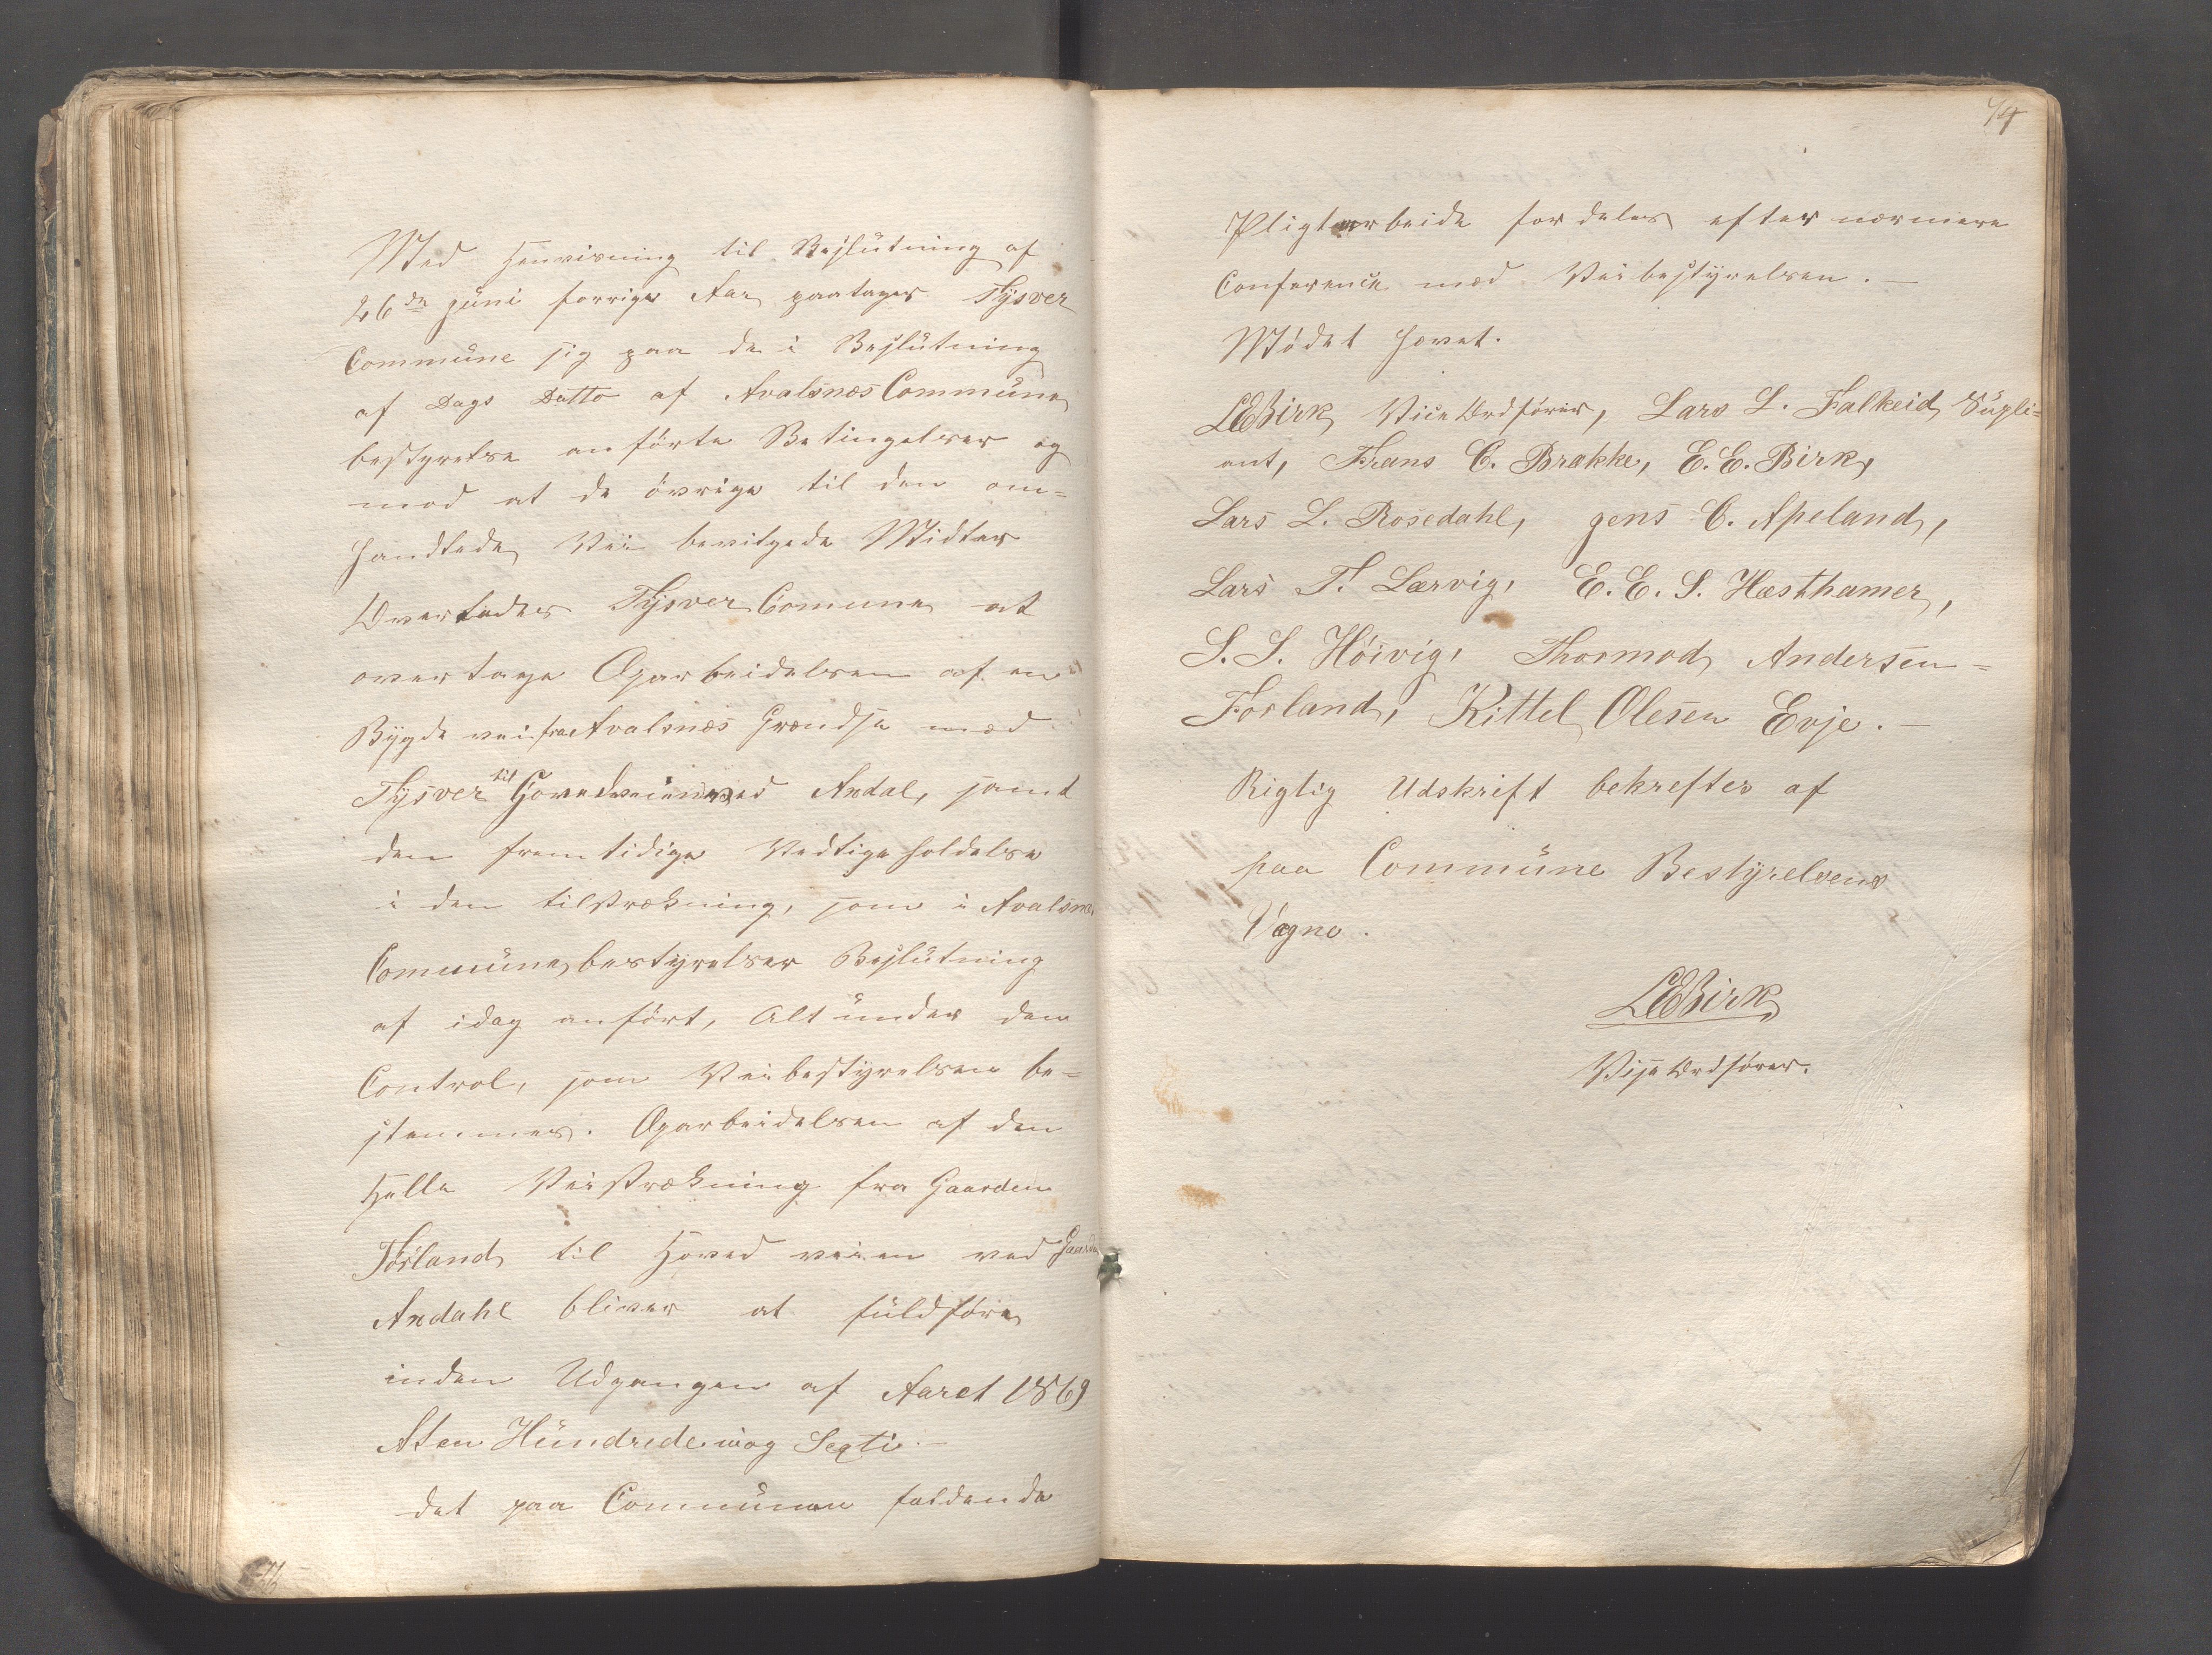 Med Henvisning til Beslütning af
26de Jüni forrige Aar paatager Tÿsver
Commüne sig paa de i Beslütning
af Dags Datto af Avalsnæs Commüne
bestyrelse anförte Betingelser og
mod at de övrige til den om=
handlede Vei bevilgede Midler
Overlades Tÿsver Comune at
overtage Oparbeidelsen af en
Bÿgde vei fra Avalsnæs Grændse med
Tÿsver til Hovedveien ved Andal, samt
den fremtidige Vedligeholdelse
i den tilstrækning, som i Avalsnæs
Commüne bestÿrelses Beslütning
af idag anfört, Alt ünder den
Control, som Veibestÿrelsen be=
stemmer. Oparbeidelsen af den
Hele Veistrækning fra Gaarden
Förland til Hoved veien ved Gaarden
Andahl bliver at füldföre
inden Udgangen af Aaret 1869
Aten Hündrede niog Sexti.—
det paa Communen faldende
74
Pligtarbeide fordeles efter nærmere
Conference med Veibestÿrelsen.—
Mödet hævet.
LEBirk Vice Ordförer, Lars L. Falkeid Süpli=
ant, Frans C. Brække, E. E. Birk,
Lars L. Rosedahl, Jens C. Apeland,
Lars T. Lærvig, E. E. S. Hæsthamer,
S. S. Höivig, Thormod Andersen=
Förland, Kittel Olesen Evje.—
Rigtig Udskrift bekreftes af
paa Commüne Bestÿrelsens
Vegne.
LEBirk
Vise Ordförer.